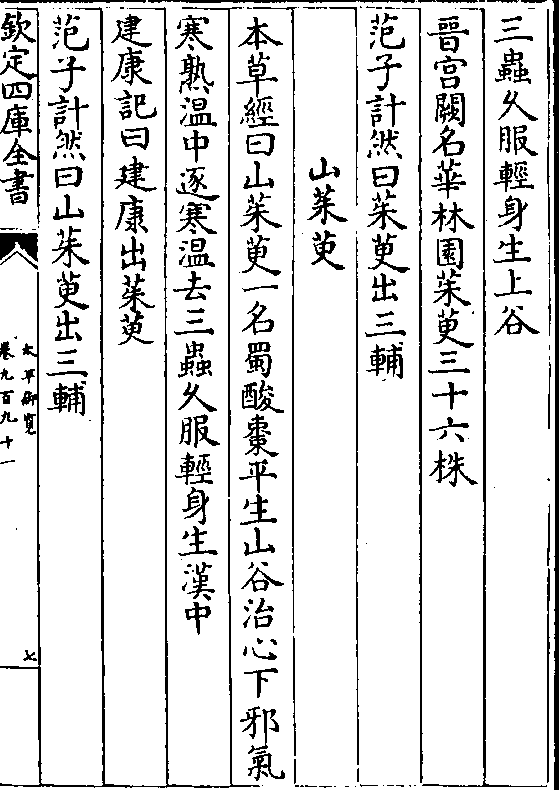 三蟲久服輕身生上谷
晉宫闕名華林園茱萸三十六株
范子計然曰茱萸出三輔
山茱萸
本草經曰山茱萸一名蜀酸棗平生山谷治心下邪氣
寒熱温中逐寒温去三蟲久服輕身生漢中
建康記曰建康出茱萸
范子計然曰山茱萸出三輔
欽定四庫全書
太平御覽
卷九百九十一
七